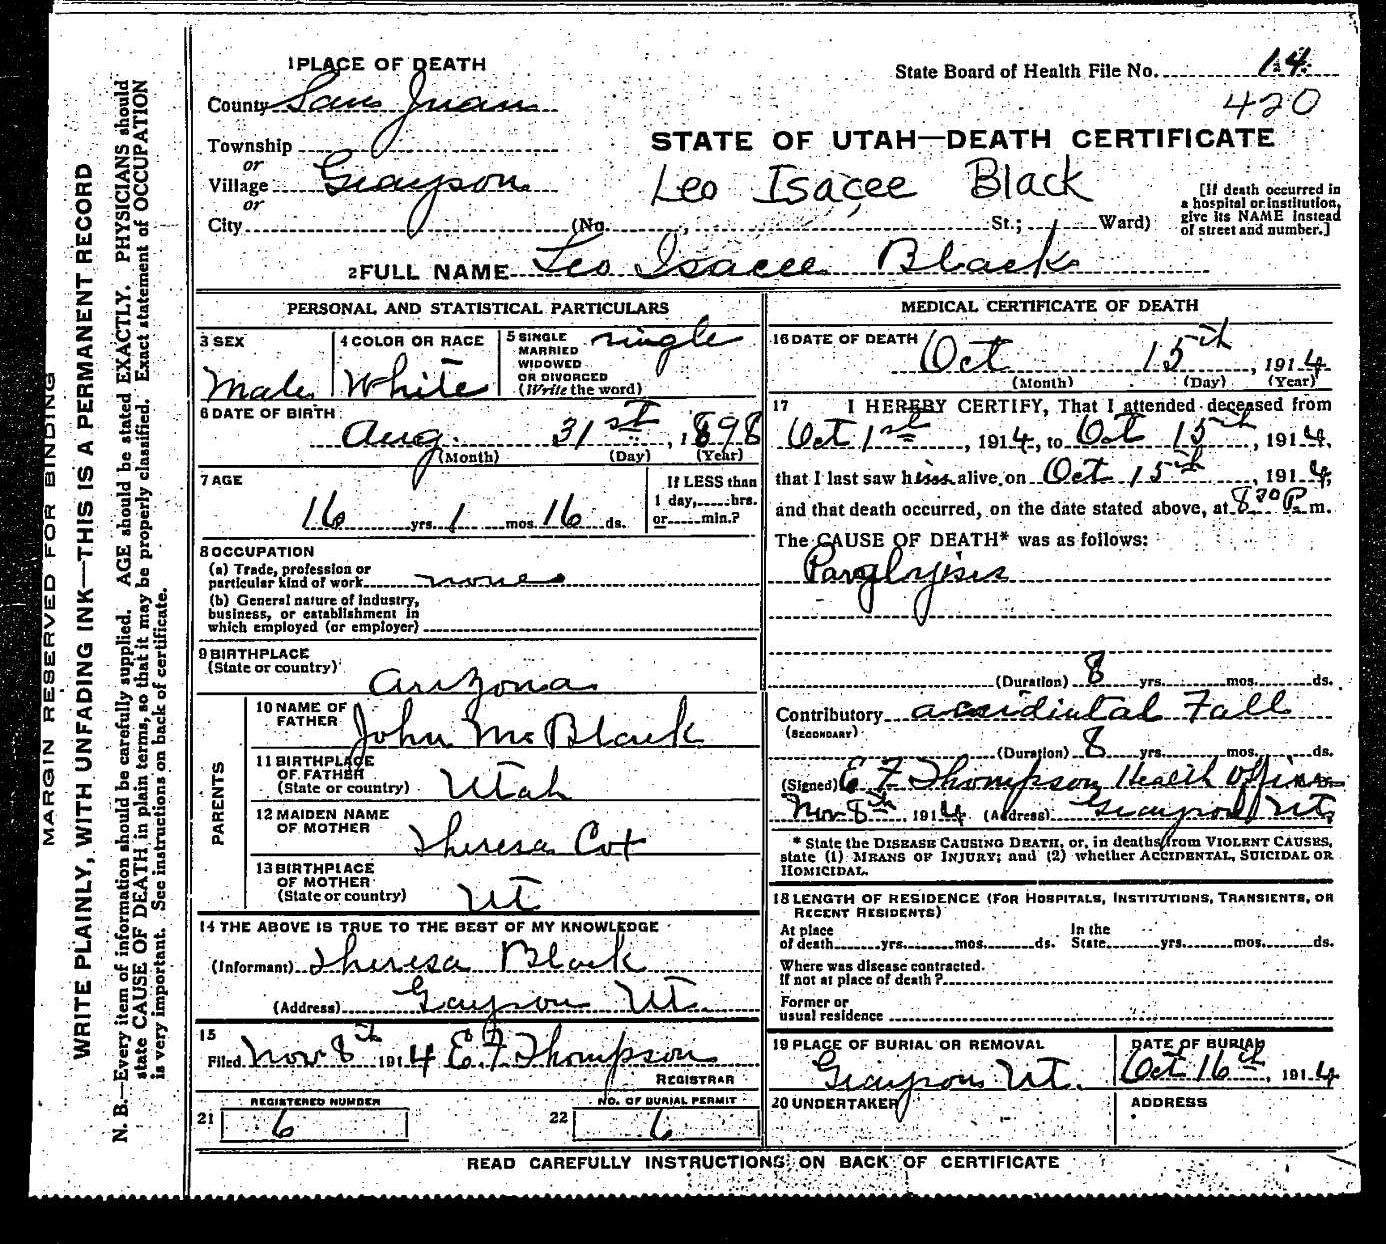 1 PLACE OF DEATH
State Board of Health File No. 14
420
County San Juan
STATE OF UTAH—DEATH CERTIFICATE
Township
or
Village Grayson
Leo Isacee Black
or
City (No. , St.; Ward)
[If death occurred in
a hospital or institution,
give its NAME instead
of street and number.]
2 FULL NAME Leo Isacee Black
PERSONAL AND STATISTICAL PARTICULARS
3 SEX
Male
4 COLOR OR RACE
White
5 SINGLE
MARRIED
WIDOWED
OR DIVORCED
(Write the word)
single
6 DATE OF BIRTH
Aug. 31st, 1898
(Month) (Day) (Year)
7 AGE
16 yrs. 1 mos. 16 ds.
If LESS than
1 day, hrs.
or min.?
8 OCCUPATION
(a) Trade, profession or
particular kind of work none
(b) General nature of industry,
business, or establishment in
which employed (or employer)
9 BIRTHPLACE
(State or country)
Arizona
PARENTS
10 NAME OF
FATHER
John Mc Black
11 BIRTHPLACE
OF FATHER
(State or country)
Utah
12 MAIDEN NAME
OF MOTHER
Theresa Cox
13 BIRTHPLACE
OF MOTHER
(State or country)
Ut
14 THE ABOVE IS TRUE TO THE BEST OF MY KNOWLEDGE
(Informant) Theresa Black
(Address) Grayson Ut.
15
Filed Nov 8th 1914 E F Thompson
REGISTRAR
REGISTERED NUMBER
21 6
NO. OF BURIAL PERMIT
22 6
MEDICAL CERTIFICATE OF DEATH
16 DATE OF DEATH
Oct 15th, 1914
(Month) (Day) (Year)
17 I HEREBY CERTIFY, That I attended deceased from
Oct 1st, 1914, to Oct 15th, 1914,
that I last saw him alive on Oct 15th, 1914,
and that death occurred, on the date stated above, at 8 30 P. m.
The CAUSE OF DEATH* was as follows:
Paralysis
(Duration) 8 yrs. mos. ds.
Contributory accidintal Fall
(SECONDARY)
(Duration) 8 yrs. mos. ds.
(Signed) E F Thompson Health Officer
Nov 8th 1914 (Address) Grayson Ut.
* State the DISEASE CAUSING DEATH, or, in deaths from VIOLENT CAUSES,
state (1) MEANS OF INJURY; and (2) whether ACCIDENTAL, SUICIDAL OR
HOMICIDAL.
18 LENGTH OF RESIDENCE (FOR HOSPITALS, INSTITUTIONS, TRANSIENTS, OR
RECENT RESIDENTS)
At place
of death yrs. mos. ds.
In the
State yrs. mos. ds.
Where was disease contracted.
If not at place of death?
Former or
usual residence
19 PLACE OF BURIAL OR REMOVAL
Grayson Ut.
DATE OF BURIAL
Oct 16th, 1914
20 UNDERTAKER
ADDRESS
READ CAREFULLY INSTRUCTIONS ON BACK OF CERTIFICATE
MARGIN RESERVED FOR BINDING
WRITE PLAINLY, WITH UNFADING INK—THIS IS A PERMANENT RECORD
N. B.—Every item of information should be carefully supplied. AGE should be stated EXACTLY. PHYSICIANS should
state CAUSE OF DEATH in plain terms, so that it may be properly classified. Exact statement of OCCUPATION
is very important. See instructions on back of certificate.